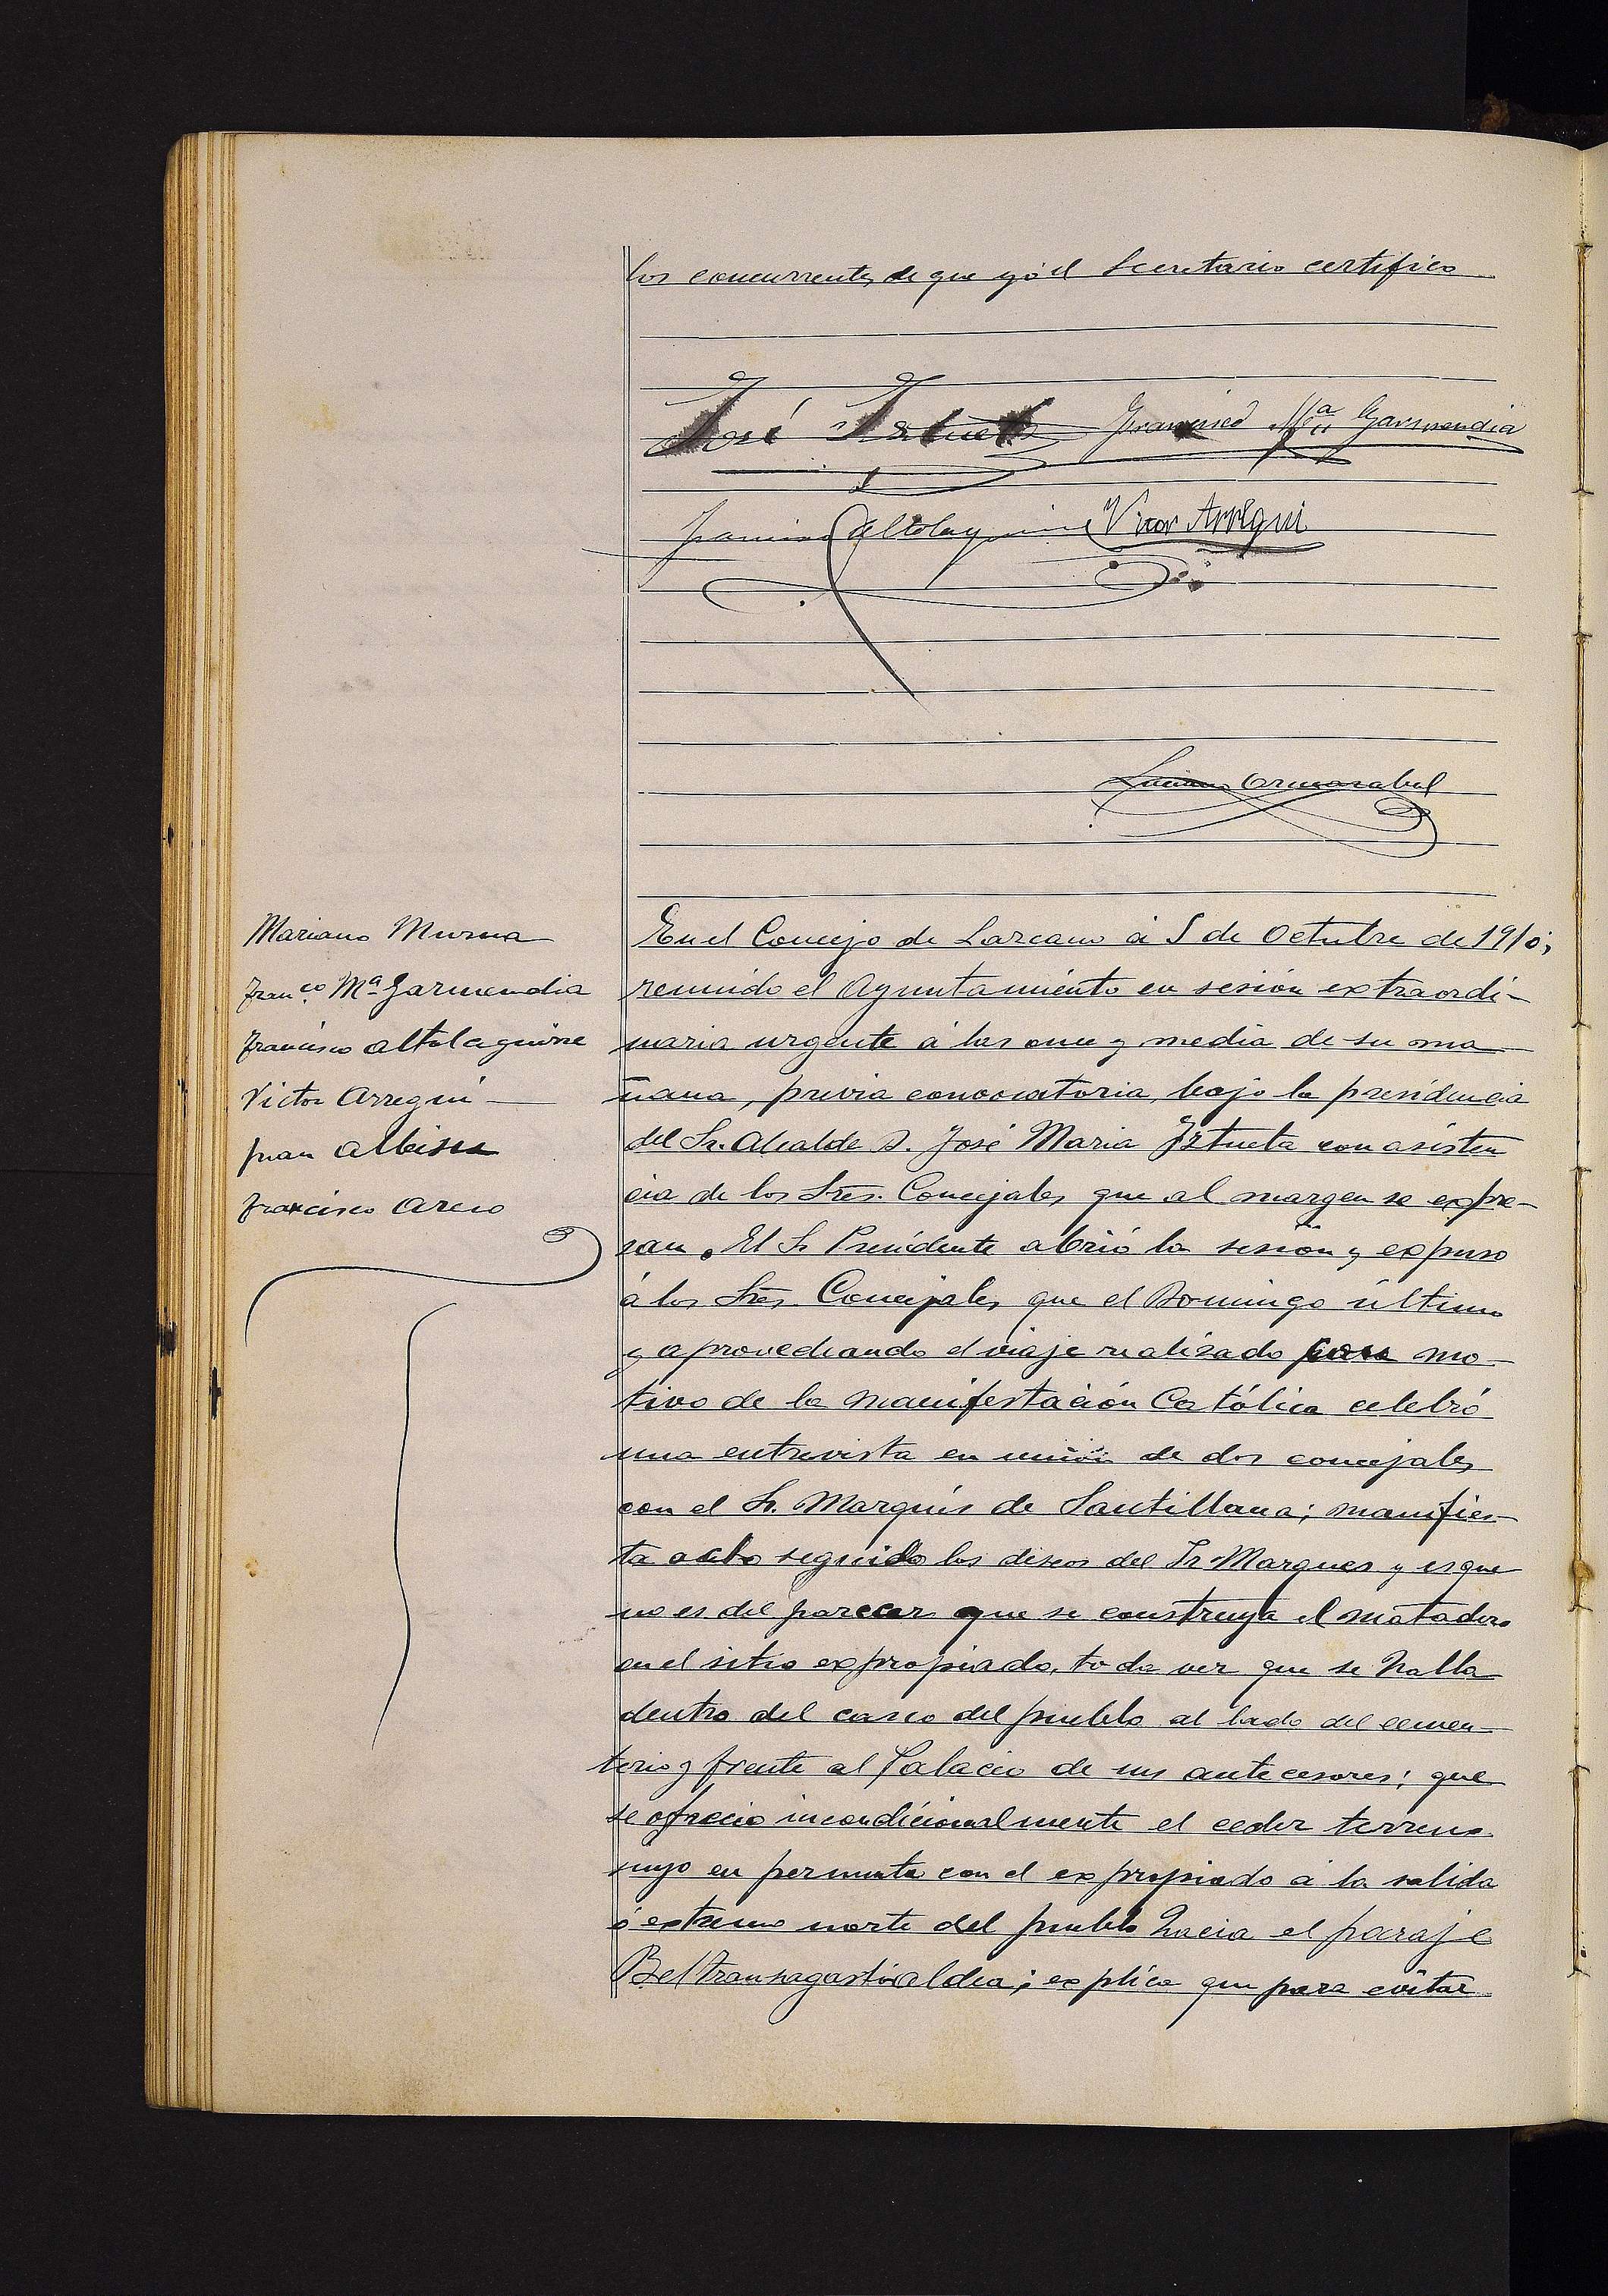 los concurrentes de que yó el Secretario certifico
José Iztueta Francisco Mª Garmendia
Francisco Altolaguirre Vitor Arregui
Luciano Ormazabal
Mariano Murua
Franco Mª Garmendia
Francisco Altolaguirre
Victor Arregui
Juan Albisu
Francisco Arcio
En el Concejo de Lazcano á 5 de Octubre de 1910;
reunido el Ayuntamiento en sesión extraordi-
naria urgente á las once y media de su ma
ñana, previa convocatoria, bajo la presidencia
del Sr. Alcalde D. José Maria Iztueta con asisten
cia de los Sres. Concejales que al margen se expre-
san. El Sr Presidente abrió la sesión y expuso
á los Sres. Concejales que el Domingo último
y aprovechando el viaje realizado con mo-
tivo de la manifestación Católica celebró
una entrevista en unión de dos concejales
con el Sr. Marqués de Santillana; manifies-
ta acto seguido los deseos del Sr Marques y es que
no es del parecer que se construya el matadero
en el sitio expropiado, toda vez que se halla
dentro del casco del pueblo al lado del cemen-
terio y frente al Palacio de sus antecesores; que
se ofrecio incondicionalmente el ceder terreno
suyo en permuta con el expropiado á la salida
ó extremo norte del pueblo hacia el paraje
Beltransagastialdea; explica que para evitar